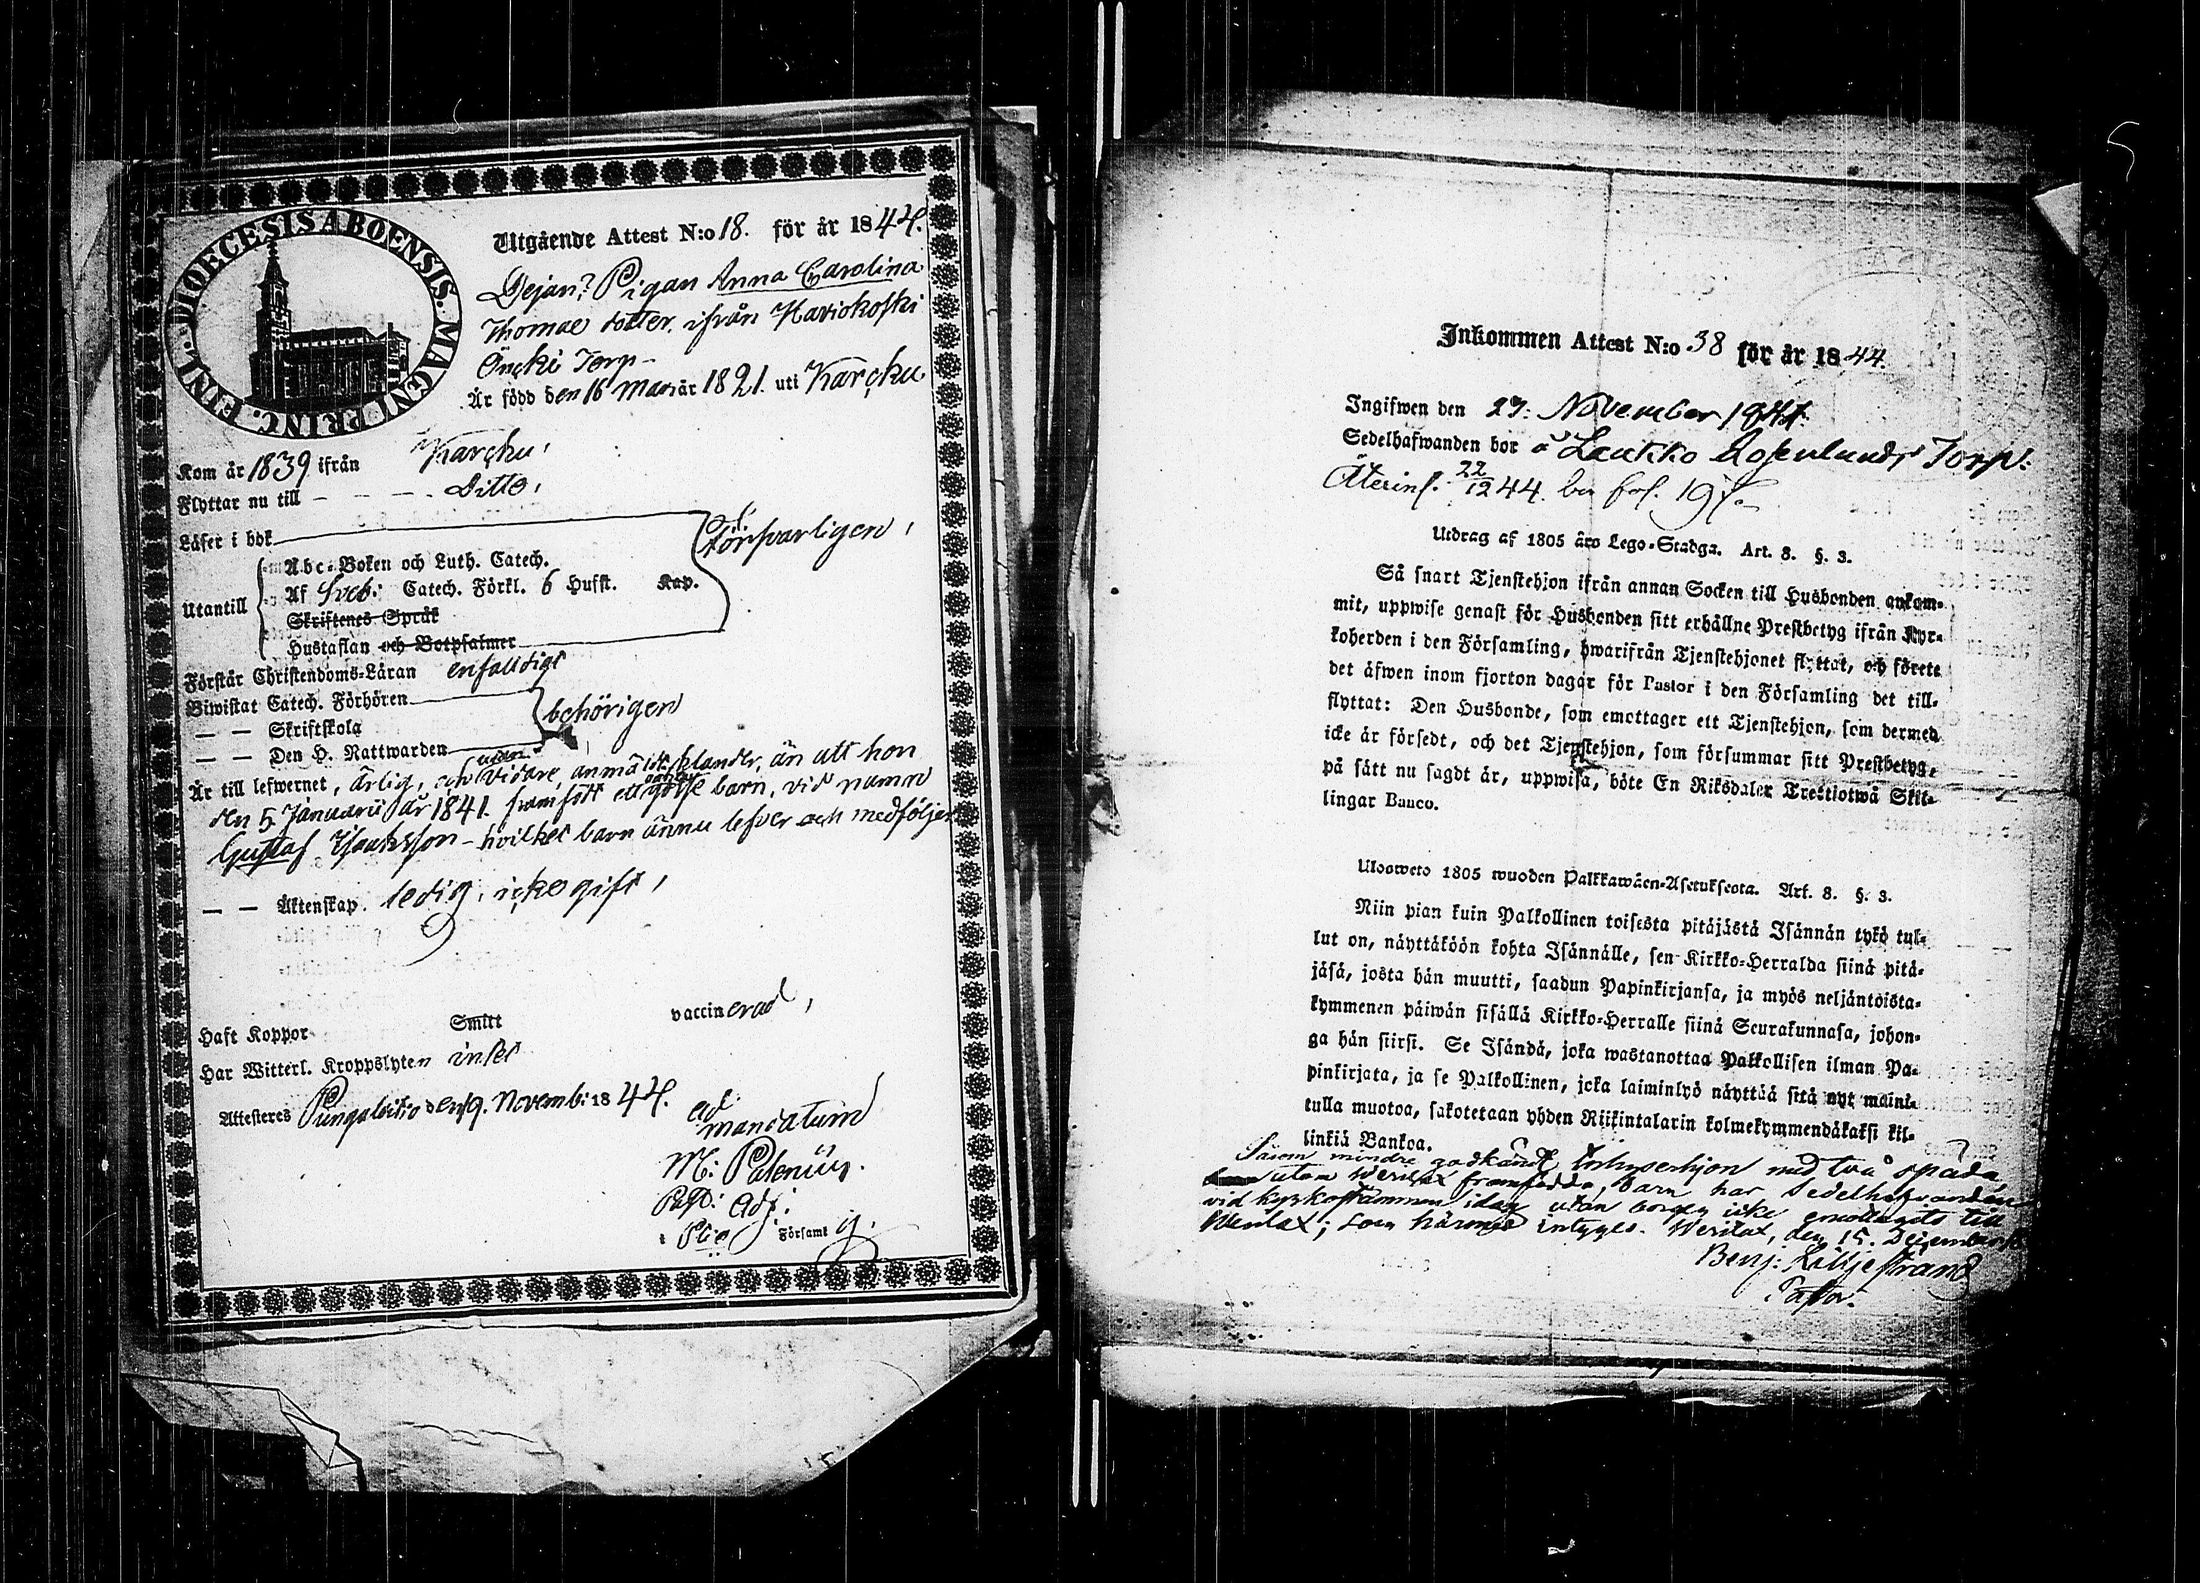 DIOECESIS ABOENSIS. MAGNI PRINC. FINL.
Utgående Attest N:o 18. för år 1844.
Pigan Anna Carolina
Thomae dotter, ifrån Haviokoski
Torp
Är född den 16 Mars år 1821. uti Karcku
Kom år 1839 ifrån Karcku,
Flyttar nu till - - - Ditto,
Läser i bok
Försvarligen,
Abc-Boken och Luth. Catech.
Utantill
Af Sveb: Catech. Förkl. 6 Hufst. Kap.
Skriftenes Språk
Hustaflan och Botpsalmer
Förstår Christendoms-Läran enfaldigt
Biwistat Catech. Förhören
behörigen
— — Skriftskola
— — Den H. Nattwarden
Är till lefwernet, ärlig, och utan vidare, anmärkt klander, än att hon
den 5 Januarii år 1841. framfödt ett oächta gosse barn, vid namn
Gustaf Isaksson - hvilket barn ännu lefver och medföljer
— — Äktenskap. ledig, icke gift,
Haft Koppor Smitt vaccinerad,
Har Witterl. Kroppslyten intet
Attesteras Pungalaitio den 9. Novemb: 1844.
ad
mandatum
M: Polenius.
Past: Adj:
i Församl g.
Inkommen Attest N:o 38 för år 1844.
Ingifwen den 27: November 1844.
Sedelhafwanden bor å Laukko Rosenlunds Torp:
Återinl. 22/12 44. fol. 197.
Utdrag af 1805 års Lego-Stadga. Art. 8. §. 3.
Så snart Tjenstehjon ifrån annan Socken till Husbonden ankom-
mit, uppwise genast för Husbonden sitt erhållne Prestbetyg ifrån Kyr-
koherden i den Församling, hwarifrån Tjenstehjonet flyttat, och förete
det äfwen inom fjorton dagar för Pastor i den Församling det till-
flyttat: Den Husbonde, som emottager ett Tjenstehjon, som dermed
icke är försedt, och det Tjenstehjon, som försummar sitt Prestbetyg,
på sätt nu sagdt är, uppwisa, böte En Riksdaler Trettiotwå Skil-
lingar Banco.
Ulosweto 1805 wuoden Palkkawäen-Asetuksesta. Art. 8. §. 3.
Niin pian kuin Palkollinen toisesta pitäjästä Isännän tykö tul-
lut on, näyttäköön kohta Isännälle, sen Kirkko-Herralda siinä pitä-
jäsä, josta hän muutti, saadun Papinkirjansa, ja myös neljäntoista-
kymmenen päiwän sisällä Kirkko-Herralle siinä Seurakunnasa, johon-
ga hän siirsi. Se Isändä, joka wastanottaa Palkollisen ilman Pa-
pinkirjata, ja se Palkollinen, joka laiminlyö näyttää sitä nyt maini-
tulla muotoa, sakotetaan yhden Riikintalarin kolmekymmendäkaksi kil-
linkiä Bankoa.
Såsom mindre godkändt Inhysehjon med två späda
utom Wesilax framfödda, barn har Sedelhafvanden
vid kyrkostämman idag utan borgen icke emottagits till
Wesilax; som härmed intygas. Wesilax, den 15. December
Benj: Lilljestrand
Pastor.